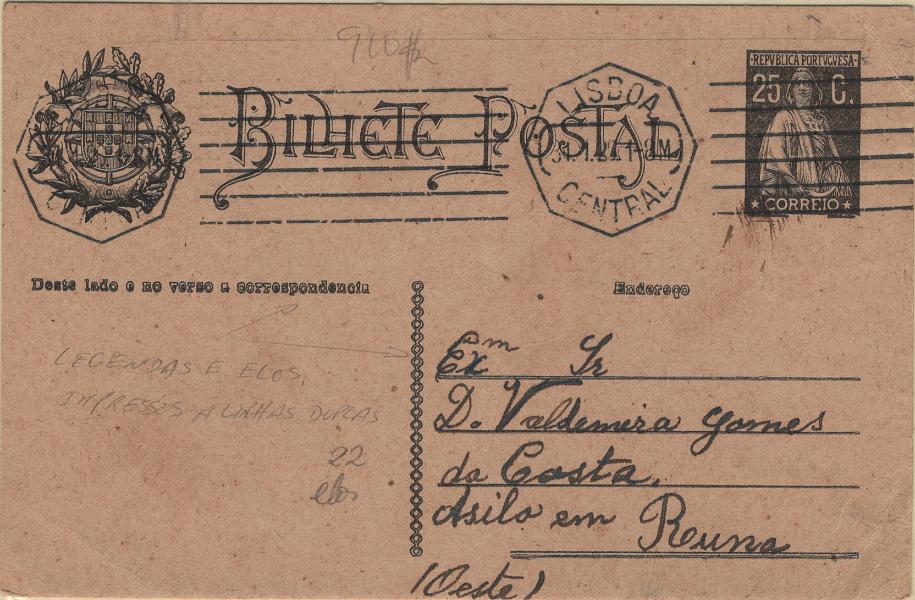 920$
BILHETE POSTAL
LISBOA
CENTRAL
REPVBLICA PORTVGVESA
25 C.
CORREIO
Deste lado e no verso a correspondencia
Endereço
LEGENDAS E ELOS
IMPRESSOS A LINHAS DUPLAS
22
elos
Exm Sr
D. Valdemira Gomes
da Costa.
Asilo em Runa
(Oeste)